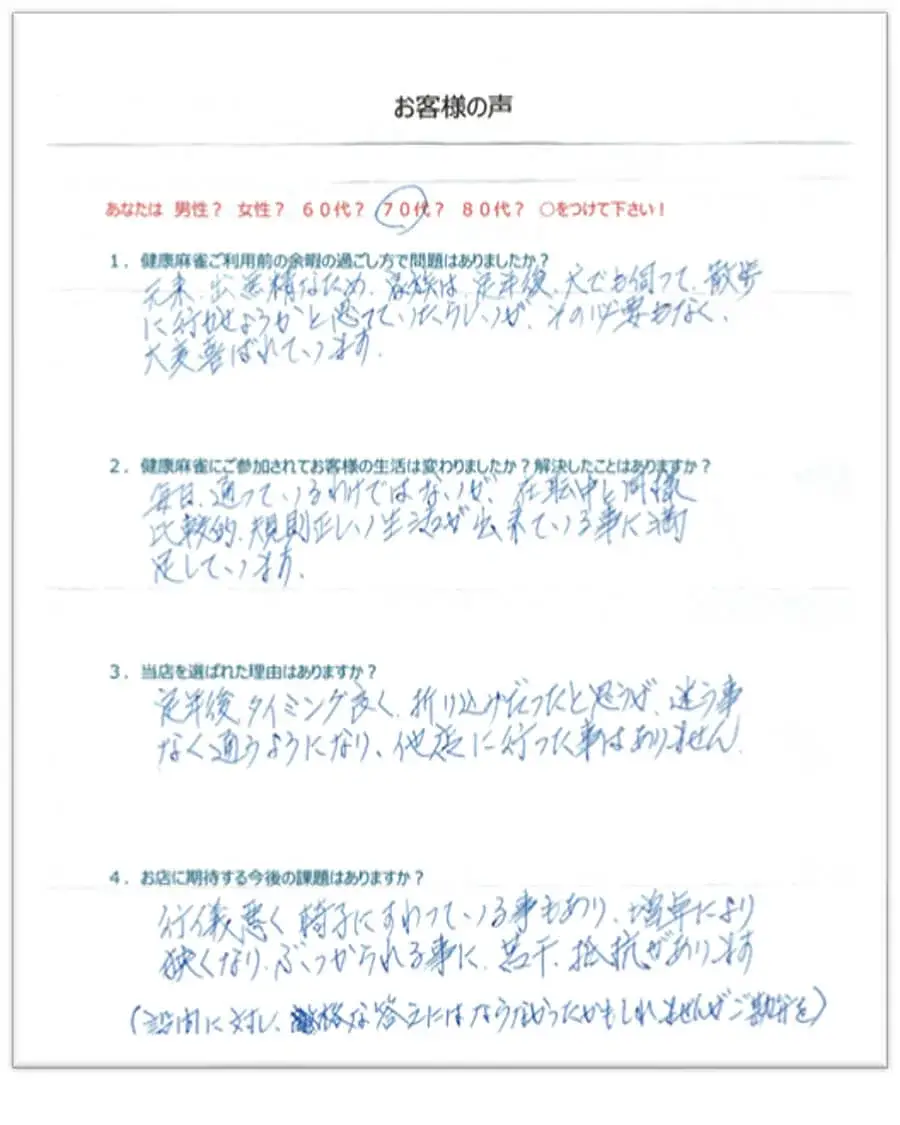 お客様の声
あなたは 男性？ 女性？ ６０代？ ７０代？ ８０代？ ○をつけて下さい！
１．健康麻雀ご利用前の余暇の過ごし方で問題はありましたか？
元来、出無精なため、家族は、定年後、犬でも飼って、散歩
に行かせようかと思っていたらしいが、その必要もなく、
大変喜ばれています。
２．健康麻雀にご参加されてお客様の生活は変わりましたか？解決したことはありますか？
毎日、通っているわけではないが、在職中と同様
比較的、規則正しい生活が出来ている事に満
足しています。
３．当店を選ばれた理由はありますか？
定年後タイミング良く、折り込みだったと思うが、迷う事
なく通うようになり、他店に行った事はありません。
４．お店に期待する今後の課題はありますか？
行儀悪く椅子にすわっている事もあり、増卓により
狭くなり、ぶつかられる事に、若干、抵抗があります
（設問に対し、な答えにはならなかったかもしれませんがご勘弁を）